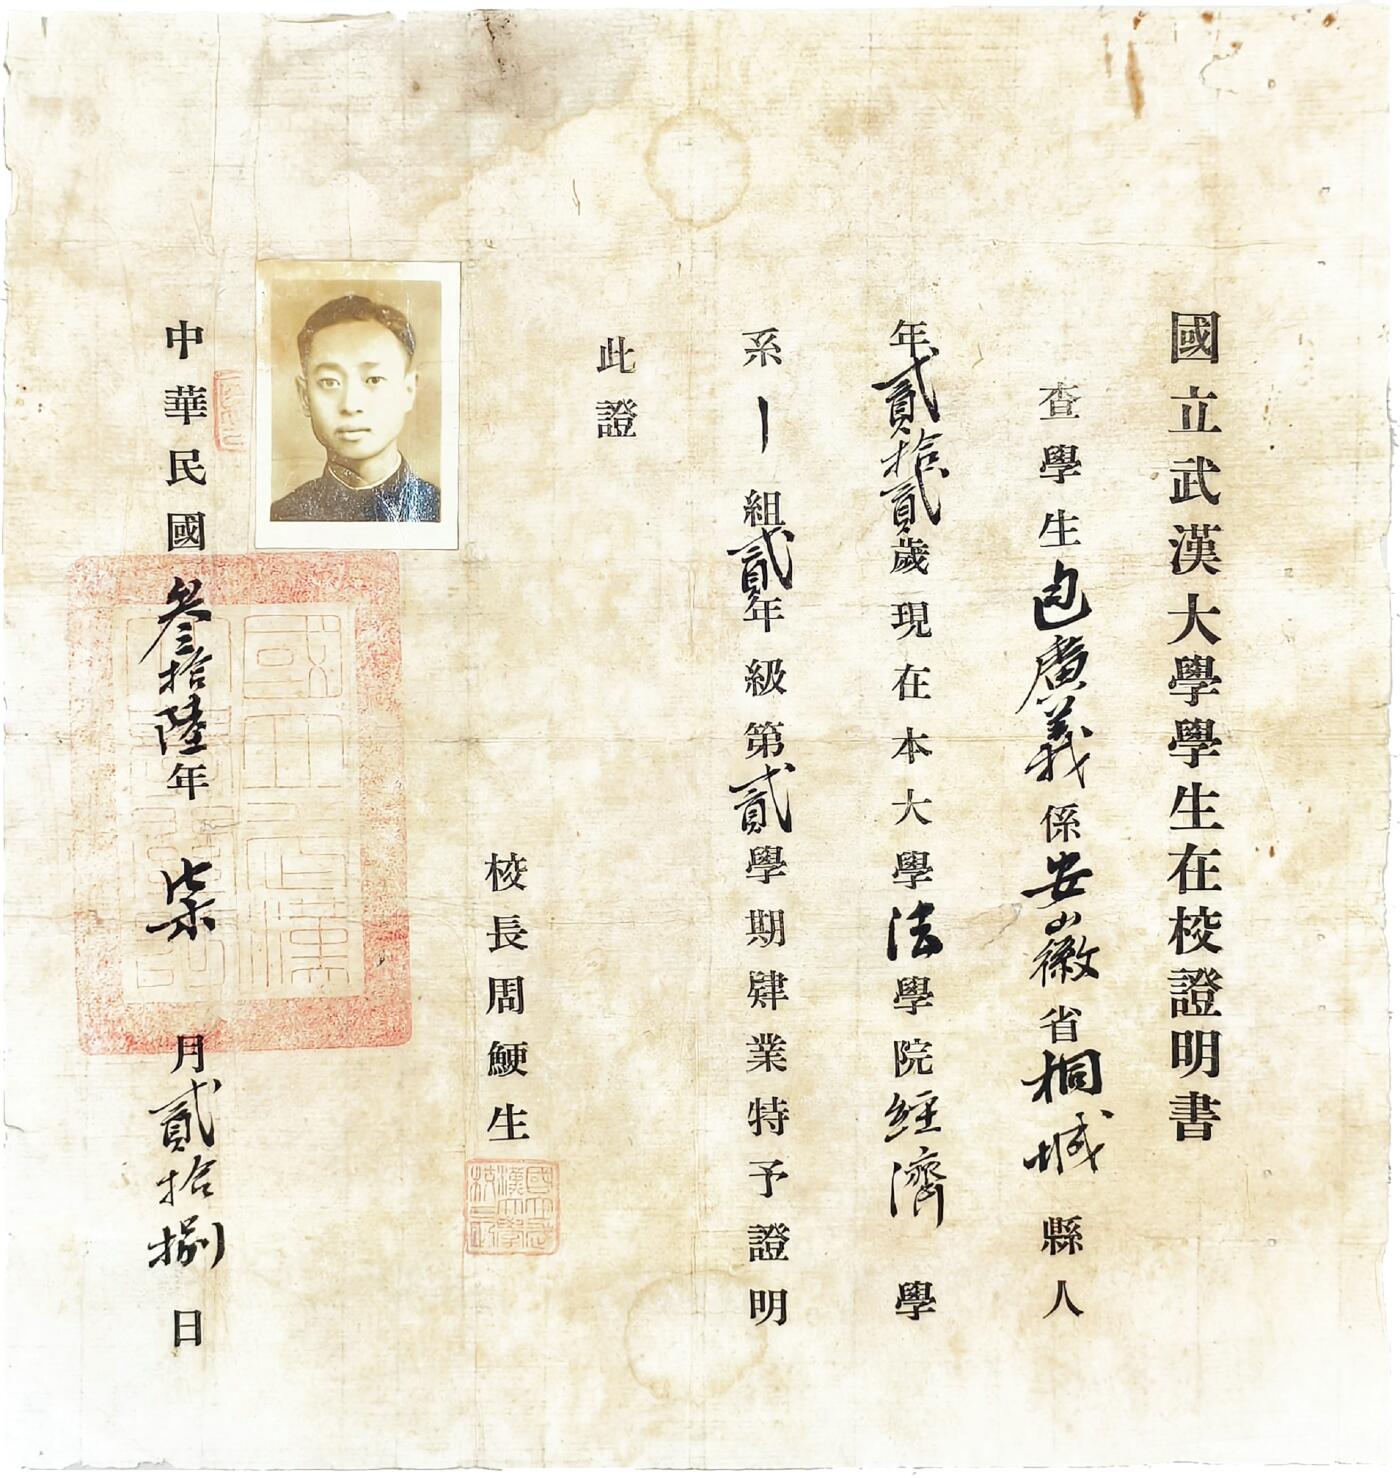 國立武漢大學學生在校證明書
查學生包廣義係安徽省桐城縣人
年貳拾貳歲現在本大學法學院經濟學
系丨組貳年級第貳學期肄業特予證明
此證
校長周鯁生
中華民國叁拾陸年柒月貳拾捌日